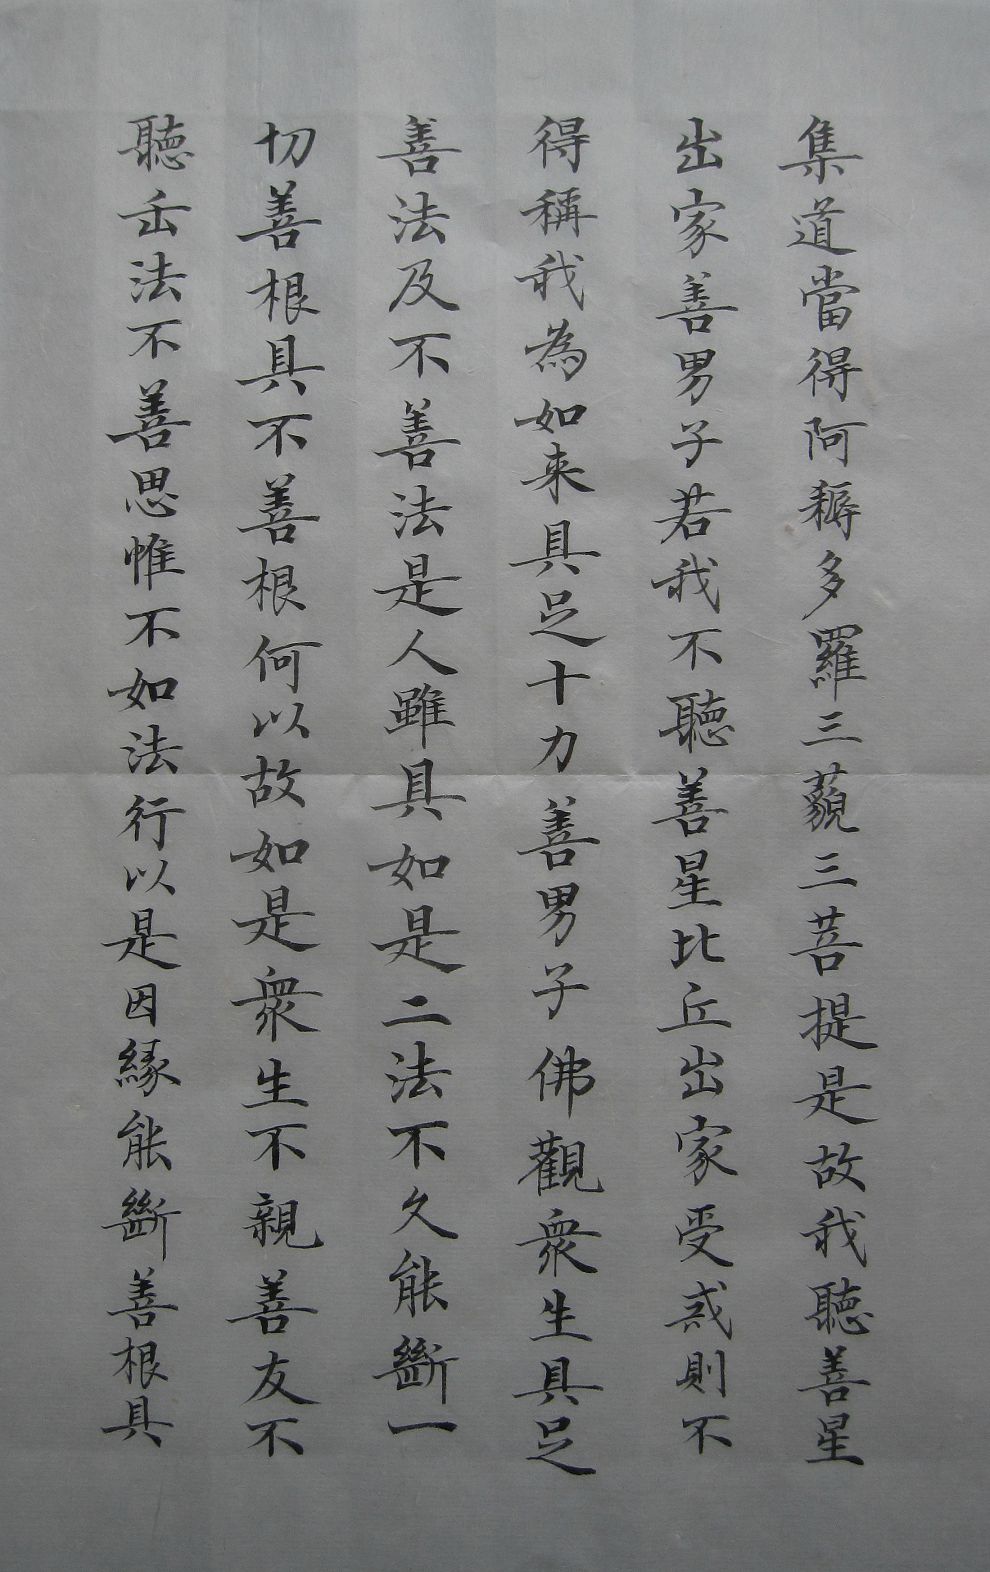 集道當得阿耨多羅三藐三菩提是故我聽善星
出家善男子若我不聽善星比丘出家受戒則不
得稱我為如来具足十力善男子佛觀衆生具足
善法及不善法是人雖具如是二法不久能斷一
切善根具不善根何以故如是衆生不親善友不
聽正法不善思惟不如法行以是因緣能斷善根具